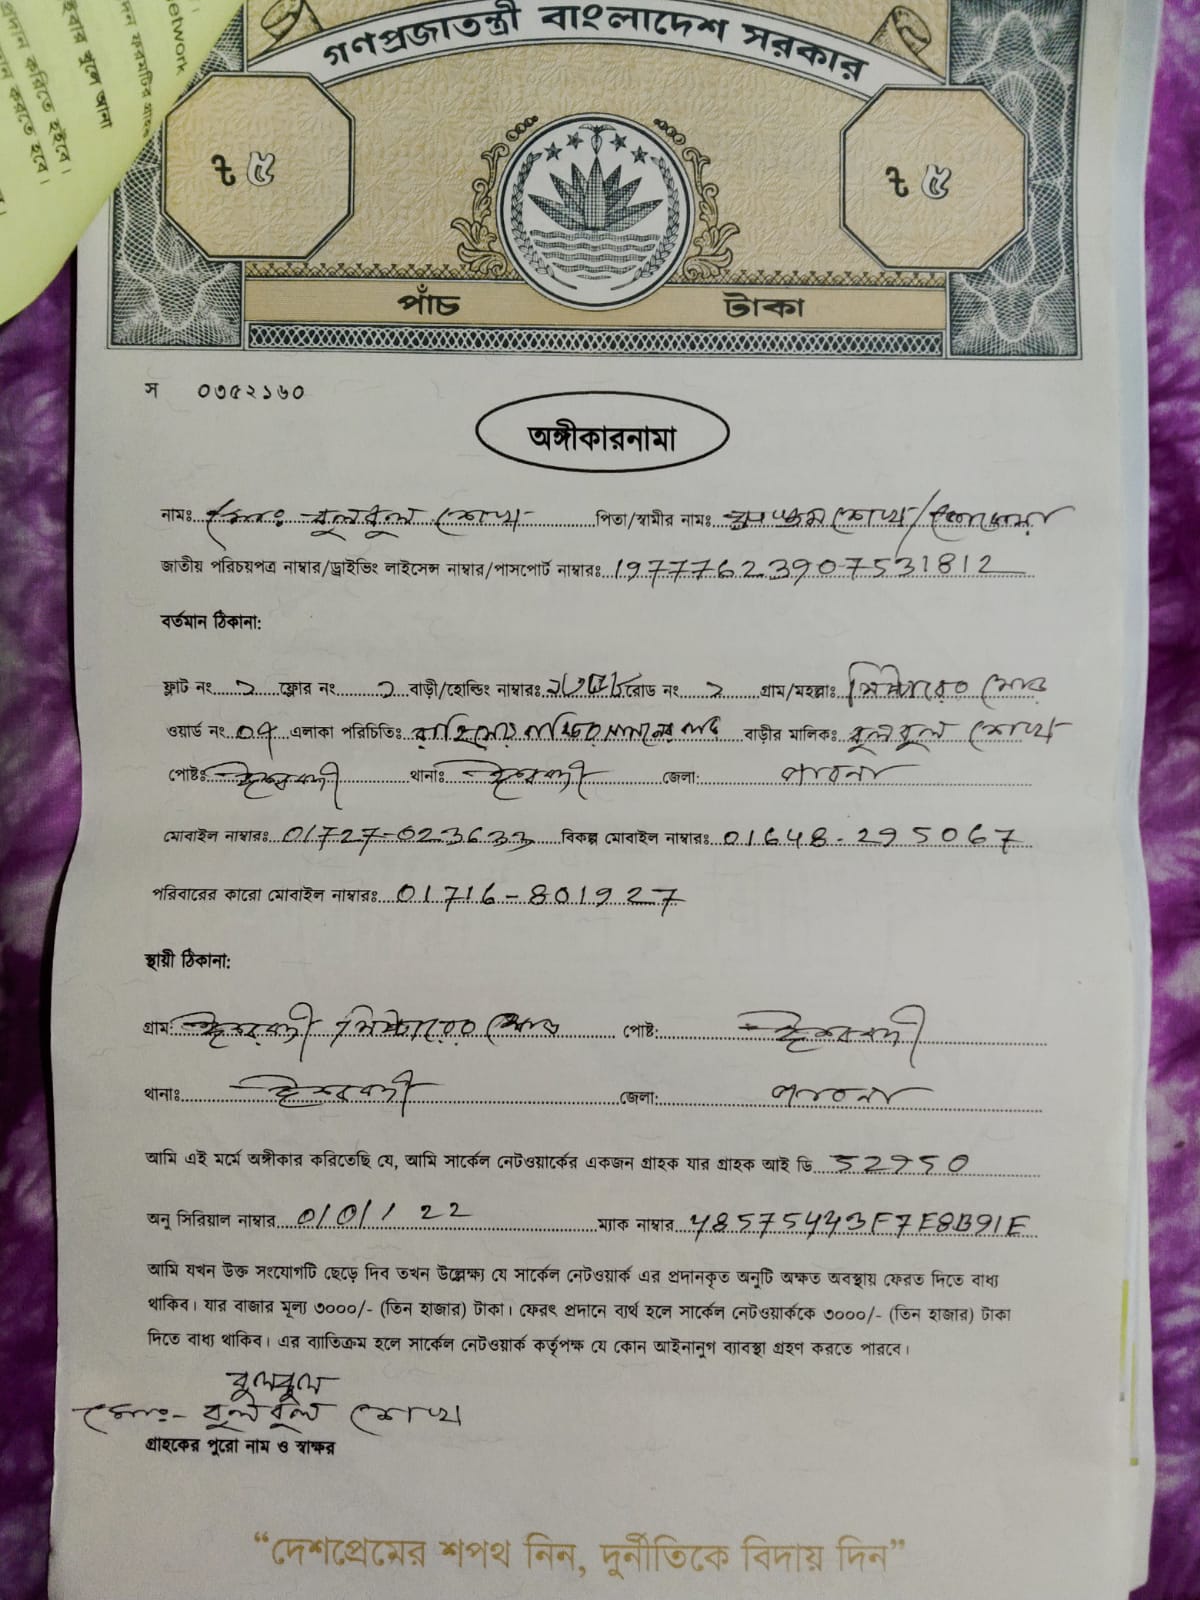 network
প্রদান করিতে হইবে।
গণপ্রজাতন্ত্রী বাংলাদেশ সরকার
৳ ৫
৳ ৫
পাঁচ টাকা
স ০৩৫২১৬০
অঙ্গীকারনামা
নামঃ মোঃ বুলবুল শেখ পিতা/স্বামীর নামঃ শেখ/
জাতীয় পরিচয়পত্র নাম্বার/ড্রাইভিং লাইসেন্স নাম্বার/পাসপোর্ট নাম্বারঃ 19777623907531812
বর্তমান ঠিকানা:
ফ্লাট নং ১ ফ্লোর নং ১ বাড়ী/হোল্ডিং নাম্বারঃ রোড নং ১ গ্রাম/মহল্লাঃ
ওয়ার্ড নং 07 এলাকা পরিচিতিঃ বাড়ীর মালিক: বুলবুল শেখ
পোষ্টঃ ঈশ্বরদী থানাঃ ঈশ্বরদী জেলা: পাবনা
মোবাইল নাম্বারঃ 01727-023633 বিকল্প মোবাইল নাম্বারঃ 01648-295067
পরিবারের কারো মোবাইল নাম্বারঃ 01716-801927
স্থায়ী ঠিকানা:
গ্রাম: ঈশ্বরদী পোষ্ট: ঈশ্বরদী
থানাঃ ঈশ্বরদী জেলা: পাবনা
আমি এই মর্মে অঙ্গীকার করিতেছি যে, আমি সার্কেল নেটওয়ার্কের একজন গ্রাহক যার গ্রাহক আই ডি 52950
অনু সিরিয়াল নাম্বার 0/0/1 22 ম্যাক নাম্বার 48575443F7E8B91E
আমি যখন উক্ত সংযোগটি ছেড়ে দিব তখন উল্লেক্ষ্য যে সার্কেল নেটওয়ার্ক এর প্রদানকৃত অনুটি অক্ষত অবস্থায় ফেরত দিতে বাধ্য
থাকিব। যার বাজার মূল্য ৩০০০/- (তিন হাজার) টাকা। ফেরৎ প্রদানে ব্যর্থ হলে সার্কেল নেটওয়ার্ককে ৩০০০/- (তিন হাজার) টাকা
দিতে বাধ্য থাকিব। এর ব্যাতিক্রম হলে সার্কেল নেটওয়ার্ক কর্তৃপক্ষ যে কোন আইনানুগ ব্যাবস্থা গ্রহণ করতে পারবে।
বুলবুল
মোঃ- বুলবুল শেখ
গ্রাহকের পুরো নাম ও স্বাক্ষর
“দেশপ্রেমের শপথ নিন, দুর্নীতিকে বিদায় দিন”